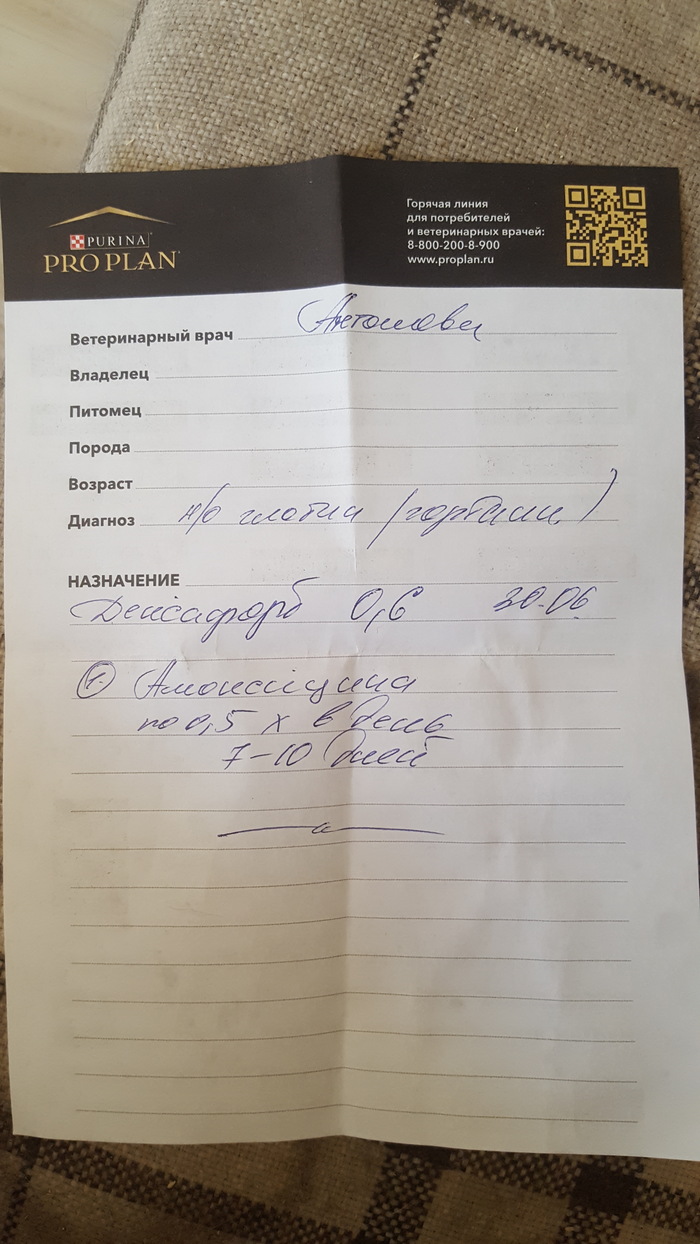 PURINA
PRO PLAN
Горячая линия
для потребителей
и ветеринарных врачей:
8-800-200-8-900
www.proplan.ru
Ветеринарный врач
Владелец
Питомец
Порода
Возраст
Диагноз н/о глотки (гортани)
НАЗНАЧЕНИЕ
Дексафорт 0,6 30.06
1. Амоксицилин
по 0,5 х в день
7-10 дней